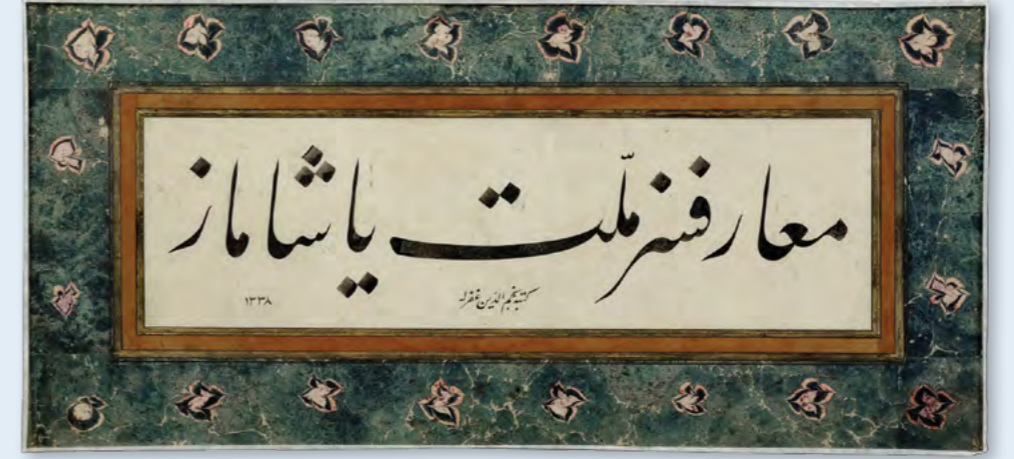 معارفسز ملّت ياشاماز
كتبه نجم الدّين غفرله
١٣٣٨